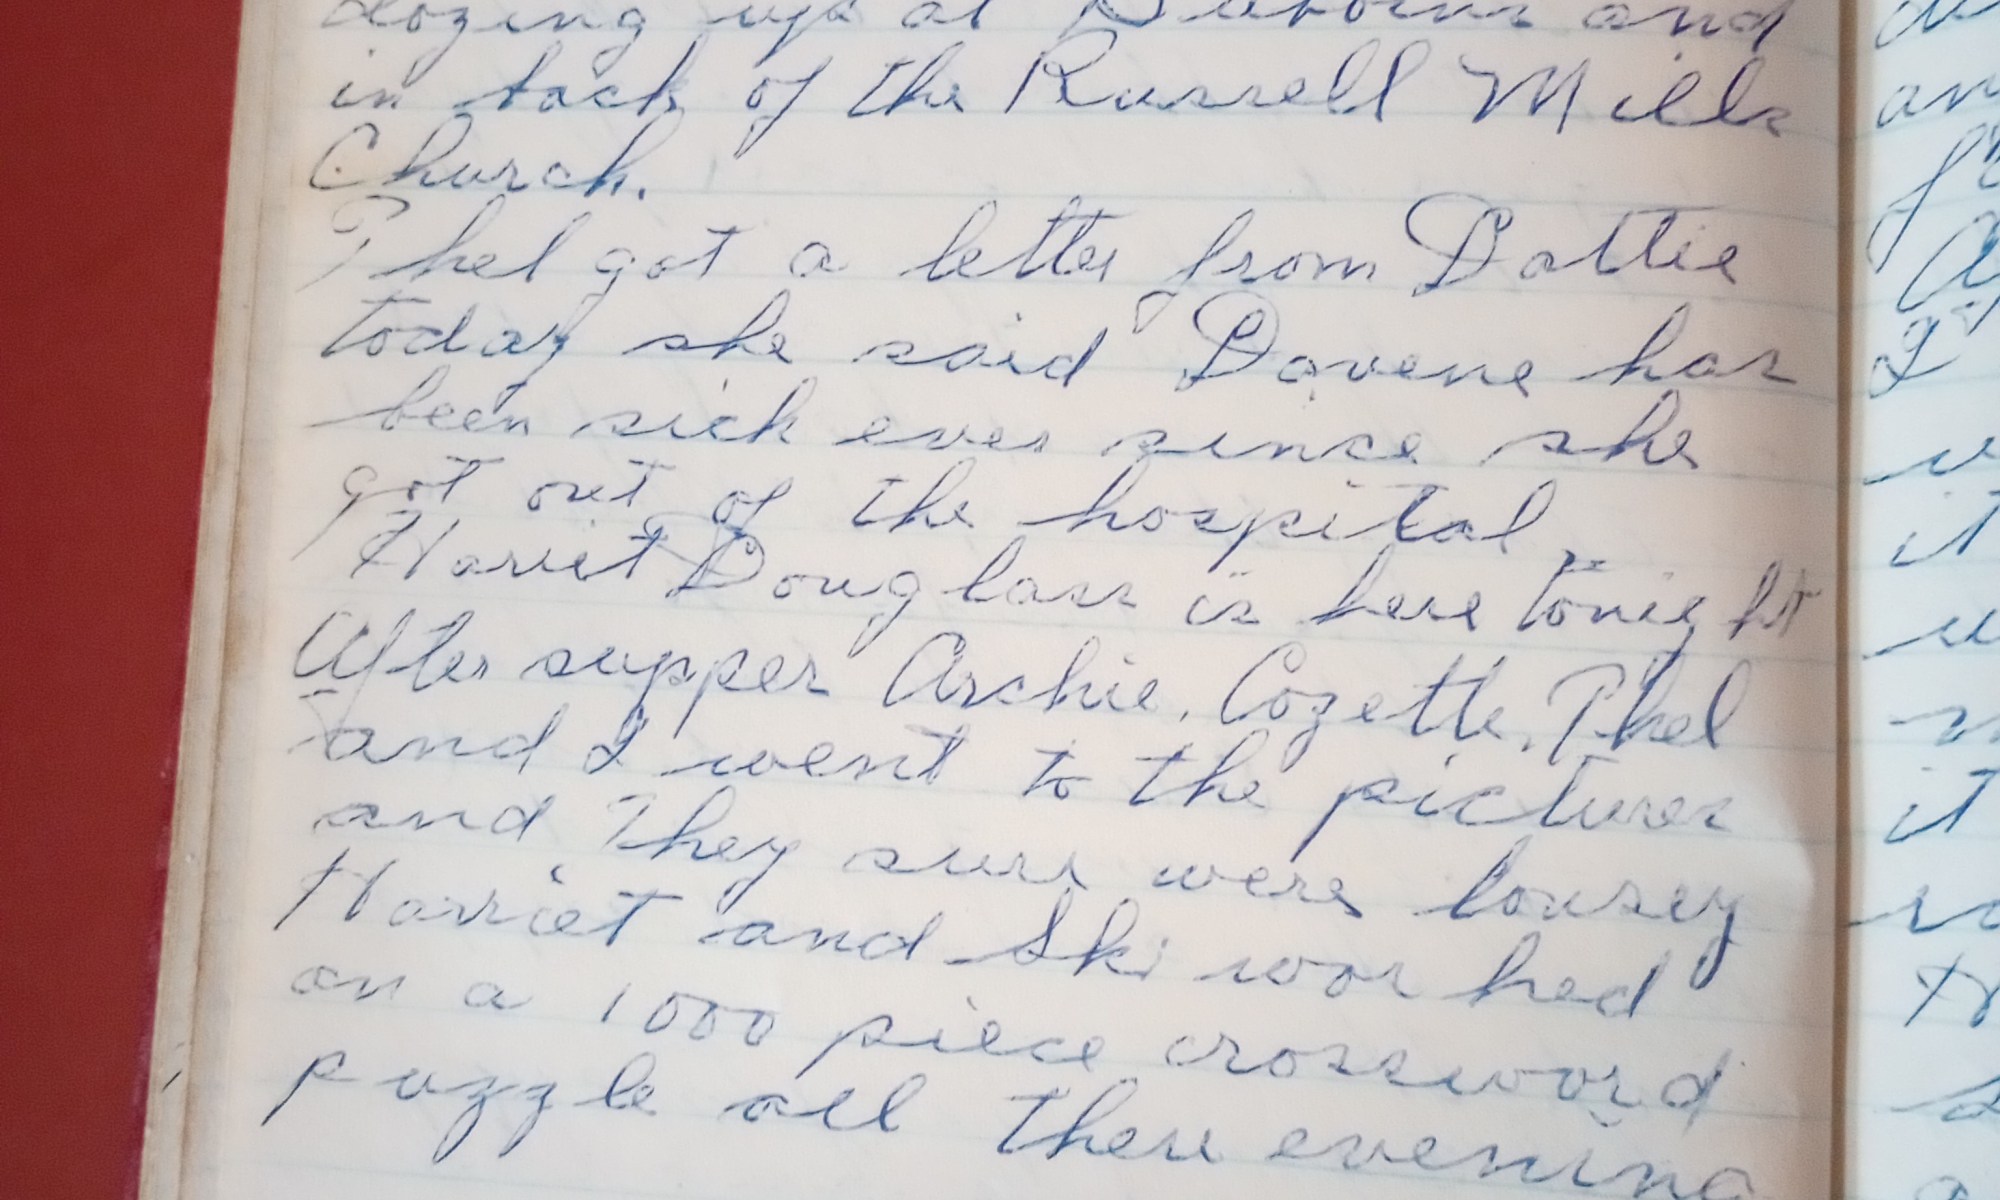 dozing up at and
in back of the Russell Mills
Church.
Phel got a letter from Dottie
today she said Davene has
been sick ever since she
got out of the hospital.
Harriet Douglass is here tonight
After supper Archie, Cozette, Phel
and I went to the pictures
and They sure were lousey
Harriet and Ski worked
on a 1000 piece crossword
puzzle all there evening